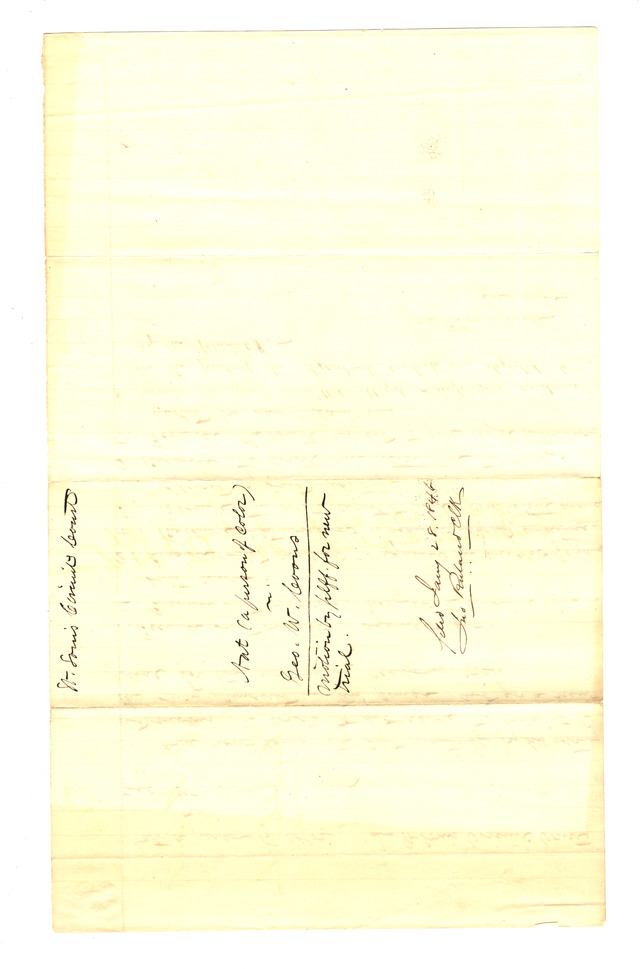 St. Louis Circuit Court
Nat (a person of Color)
v.
Geo. W. Coons
Motion by plff for new
trial.
Filed Jany 28. 1848
Jno Ruland Clk